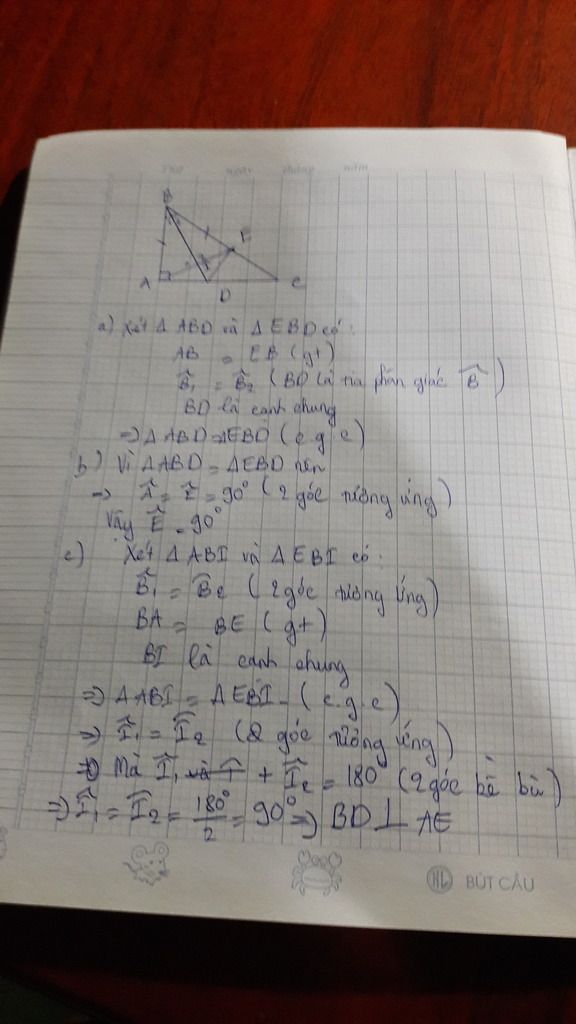 Thứ ngày tháng năm
B
E
A
D
C
a) Xét Δ ABD và Δ EBD có:
AB = EB (gt)
B̂₁ = B̂₂ (BD là tia phân giác B̂)
BD là cạnh chung
=> Δ ABD = ΔEBD (c.g.c)
b) Vì ΔABD = ΔEBD nên
=> Â = Ê = 90° (2 góc tương ứng)
Vậy Ê = 90°
c) Xét Δ ABI và Δ EBI có:
B̂₁ = B̂₂ (2 góc tương ứng)
BA = BE (gt)
BI là cạnh chung
=> Δ ABI = Δ EBI (c.g.c)
=> Î₁ = Î₂ (2 góc tương ứng)
Mà Î₁ + Î₂ = 180° (2 góc kề bù)
=> Î₁ = Î₂ = 180°/2 = 90° => BD ⊥ AE
HL BÚT CÂU